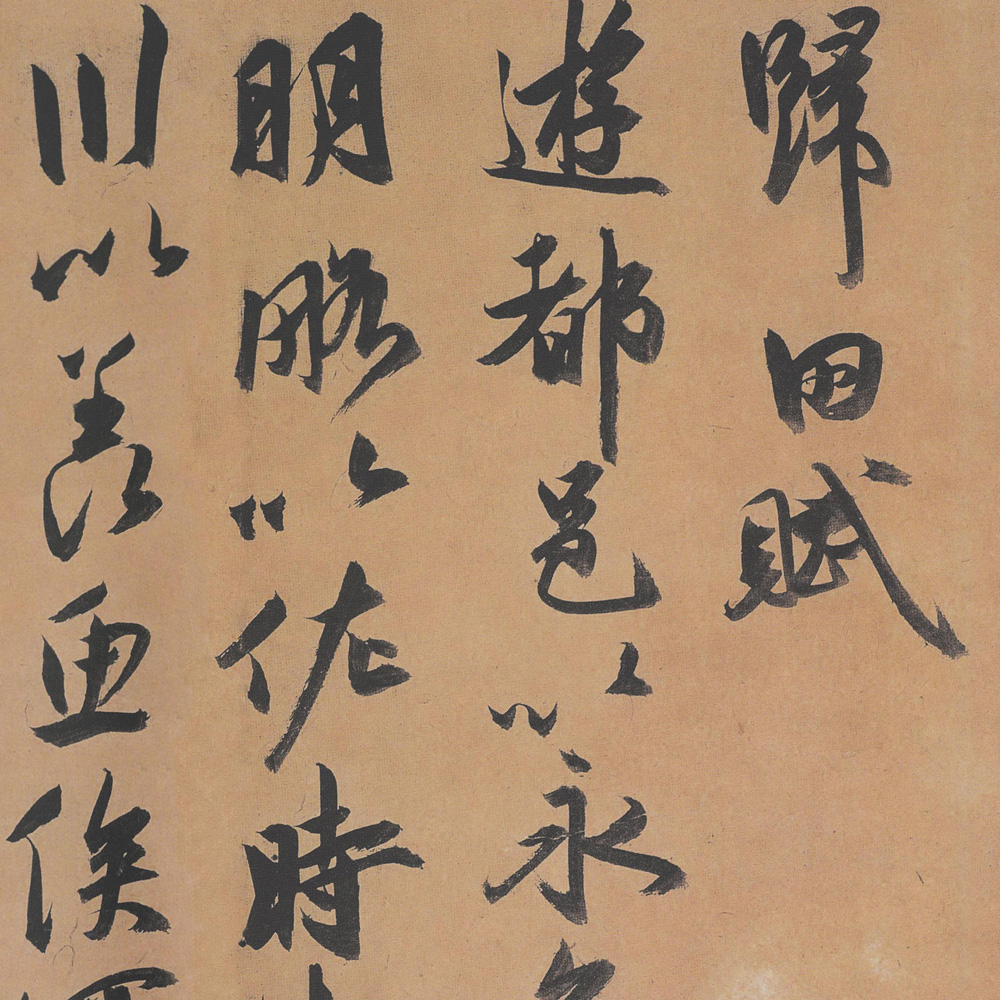 歸田賦
遊都邑以永
明略以佐時
川以羨魚俟